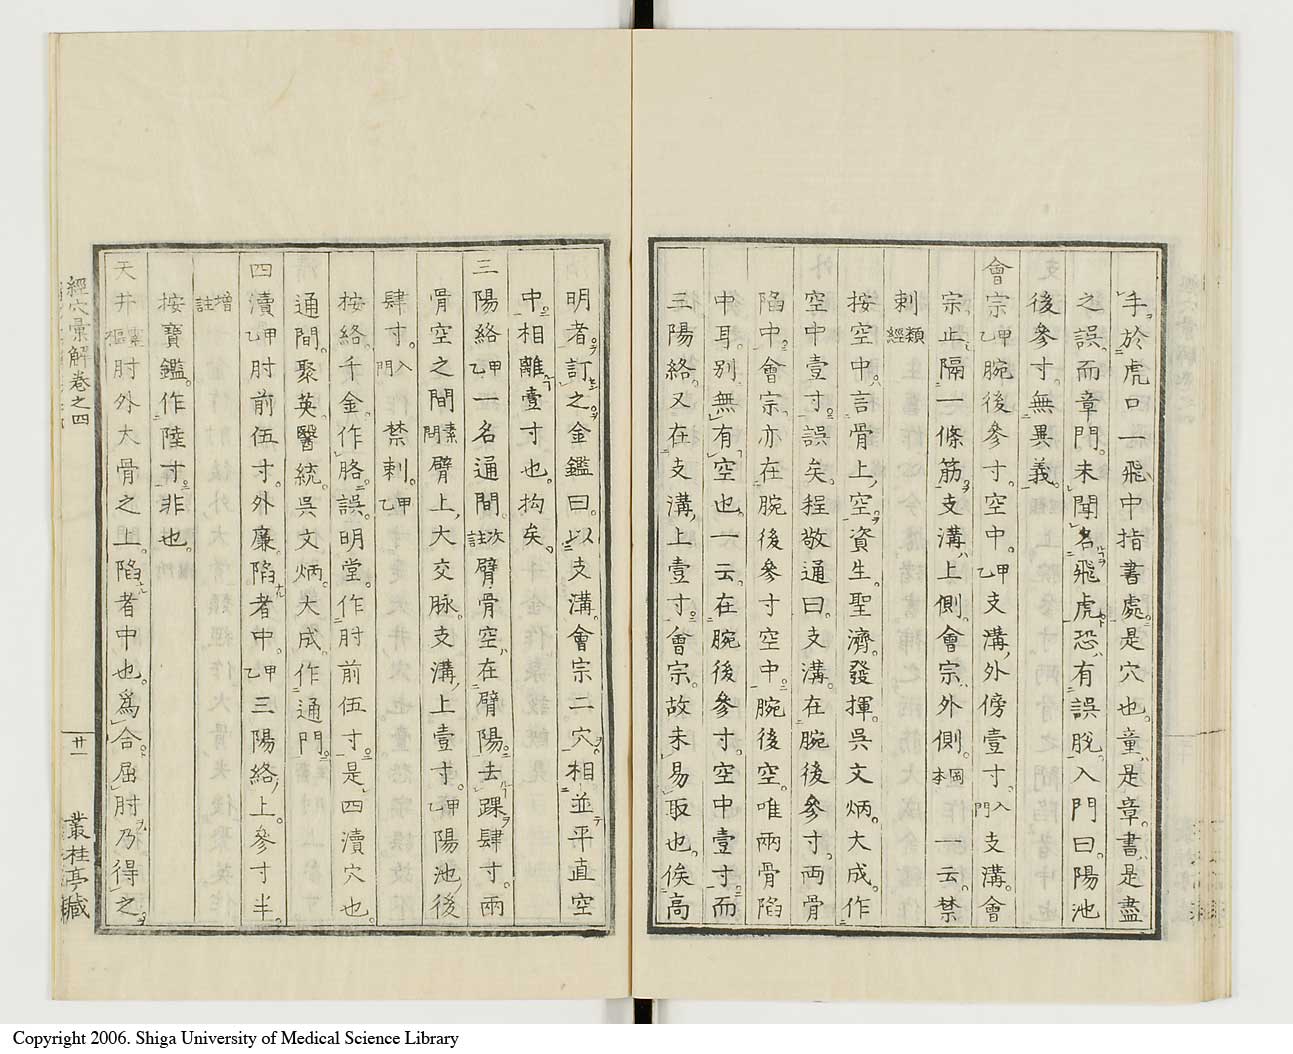 手於虎口一飛中指書處是穴也童是章書是盡
之誤而章門未聞名飛虎恐有誤脫入門曰陽池
後參寸無異義
會宗甲乙腕後參寸空中甲乙支溝外傍壹寸入門支溝會
宗止隔一條筋支溝上側會宗外側岡本一云禁
刺類經
按空中言骨上空資生聖濟發揮吳文炳大成作
空中壹寸誤矣程敬通曰支溝在腕後參寸兩骨
陷中會宗亦在腕後參寸空中腕後空唯兩骨陷
中耳別無有空也一云在腕後參寸空中壹寸而
三陽絡又在支溝上壹寸會宗故未易取也俟高
明者訂之金鑑曰以支溝會宗二穴相並平直空
中相離壹寸也拘矣
三陽絡甲乙一名通間次註臂骨空在臂陽去踝肆寸兩
骨空之間素問臂上大交脉支溝上壹寸甲乙陽池後
肆寸入門禁刺甲乙
按絡千金作胳誤明堂作肘前伍寸是四瀆穴也
通間聚英醫統吳文炳大成作通門
四瀆甲乙肘前伍寸外廉陷者中甲乙三陽絡上參寸半
增註
按寶鑑作陸寸非也
天井靈樞肘外大骨之上陷者中也爲合屈肘乃得之
經穴彙解卷之四
廿一
叢桂亭藏
Copyright 2006. Shiga University of Medical Science Library